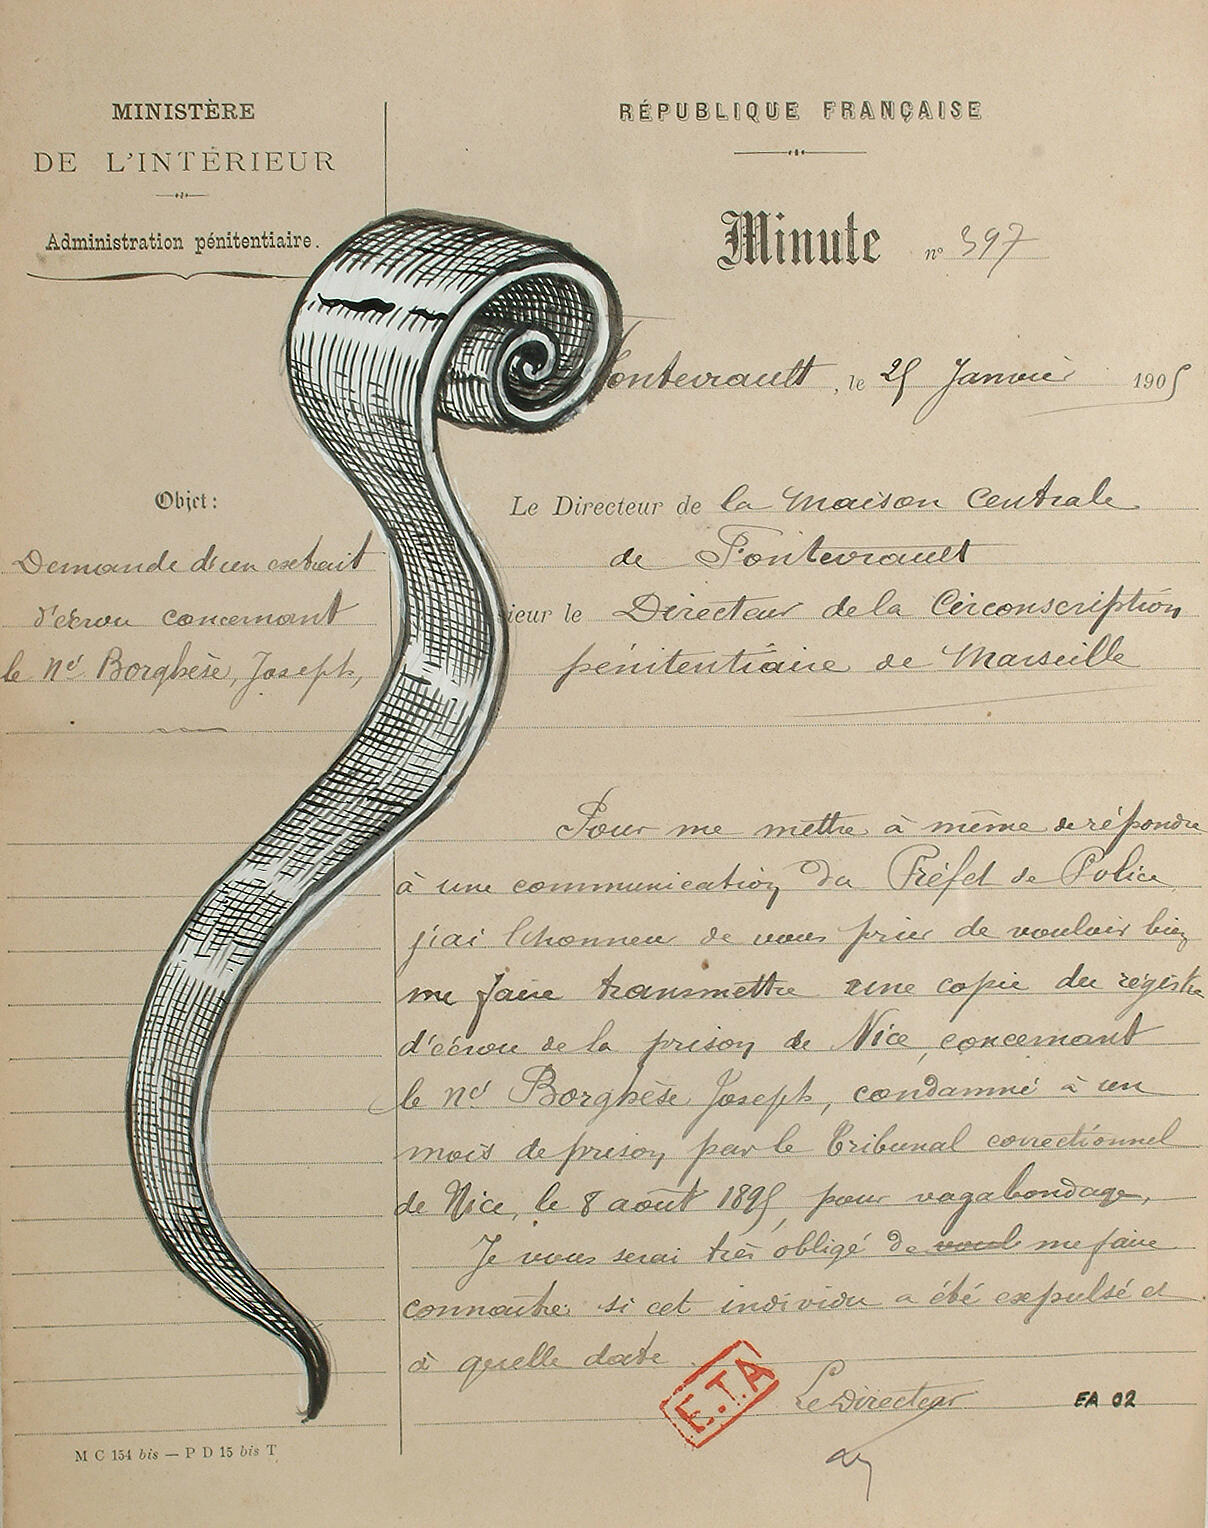 MINISTÈRE
DE L'INTÉRIEUR
Administration pénitentiaire.
RÉPUBLIQUE FRANÇAISE
Minute n° 397
Fontevrault, le 25 Janvier 1905
Objet:
Demande d'un extrait
d'écrou concernant
le né Borghèse, Joseph,
Le Directeur de la Maison Centrale
de Fontevrault
ieur le Directeur de la Circonscription
pénitentiaire de Marseille
Pour me mettre à même de répondre
à une communication du Préfet de Police
j'ai l'honneur de vous prier de vouloir bien
me faire transmettre une copie du régistre
d'écrou de la prison de Nice, concernant
le né Borghèse Joseph, condamné à un
mois de prison par le Tribunal correctionnel
de Nice, le 8 août 1895, pour vagabondage,
Je vous serai très obligé de me faire
connaître si cet individu a été expulsé et
à quelle date.
E.T.A
Le Directeur
EA 02
M C 154 bis — P D 15 bis T